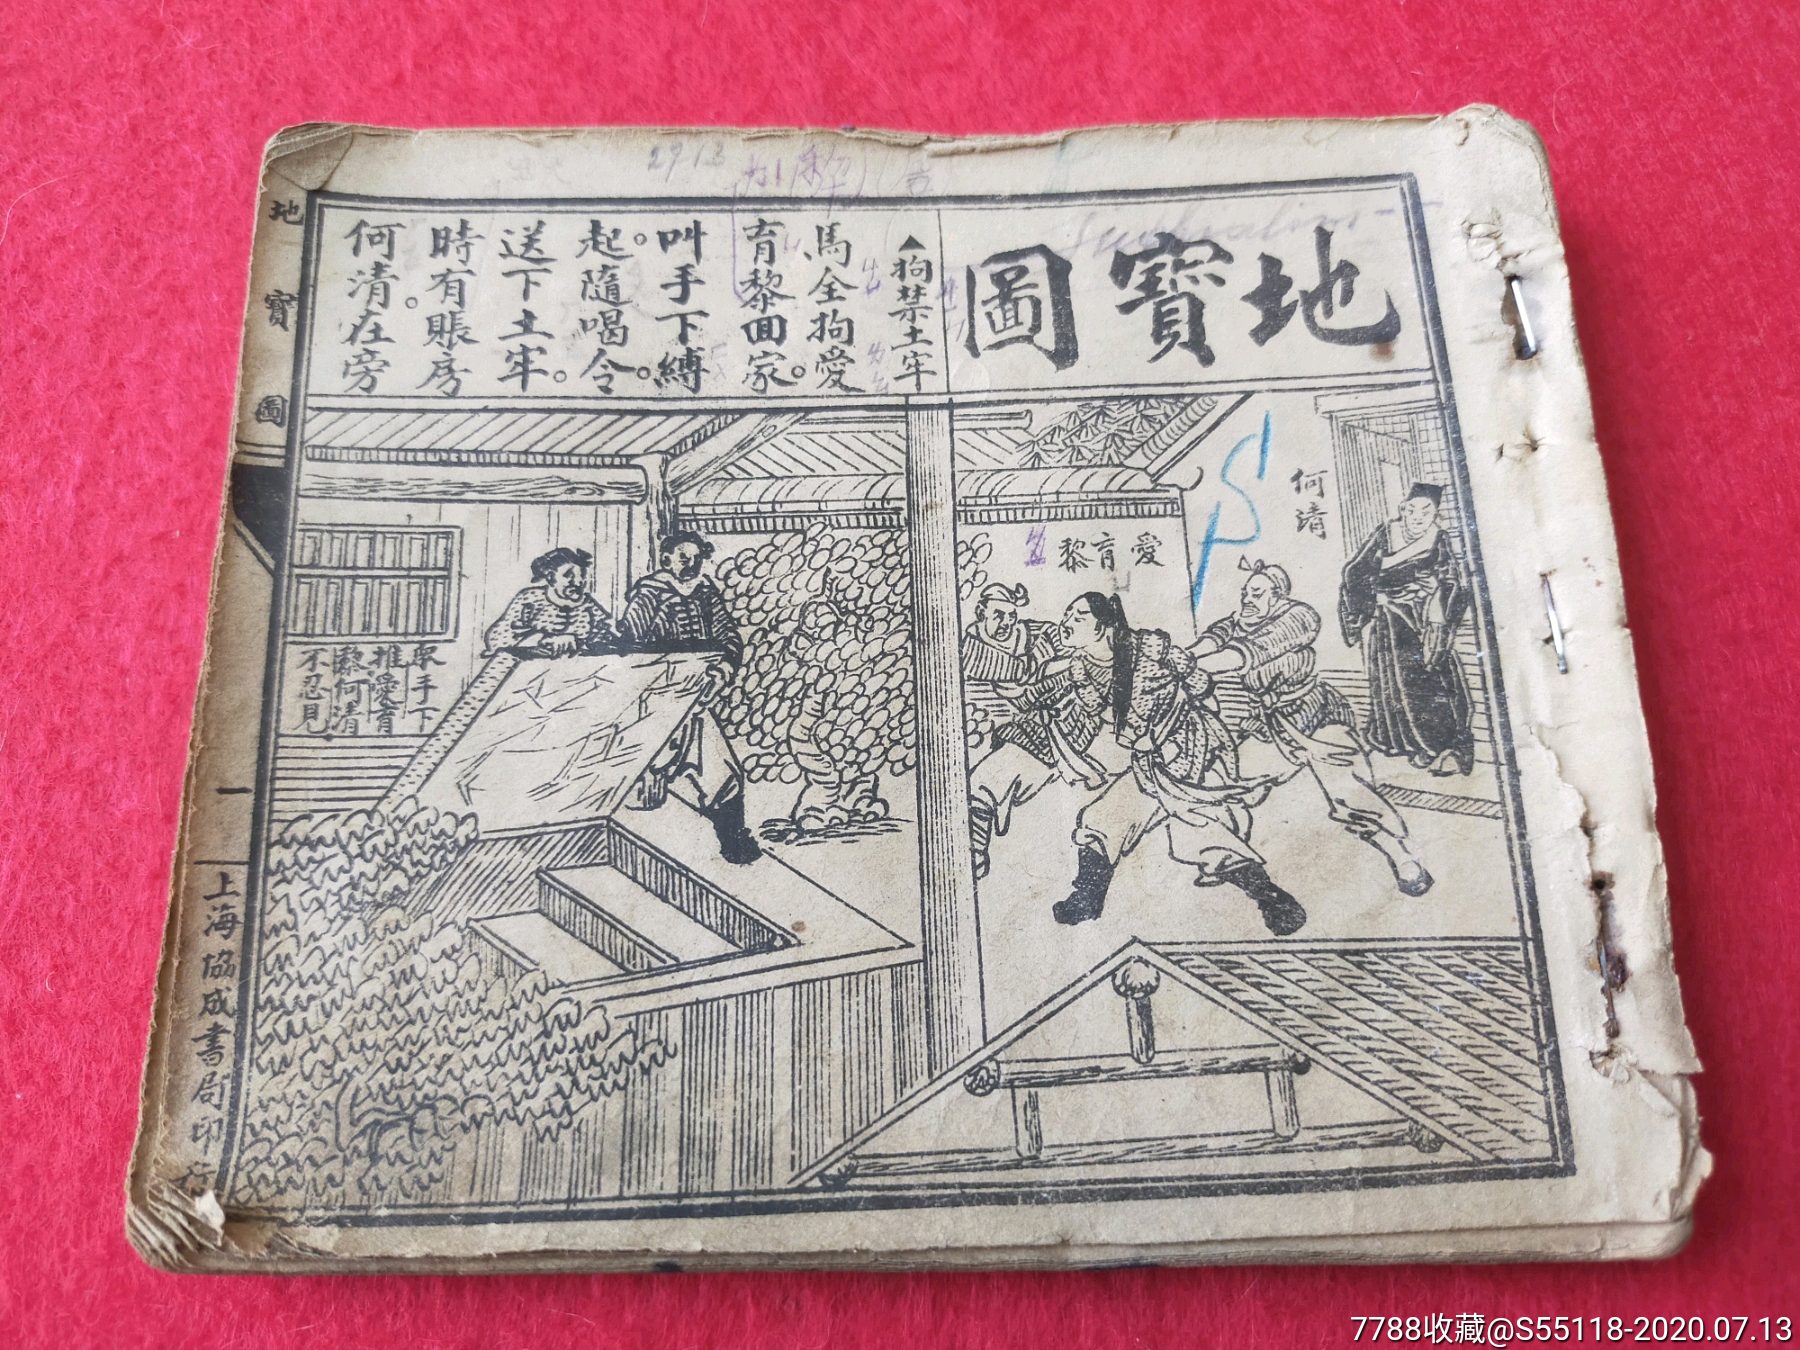 地寶圖
▲拘禁土牢
馬全拘愛
育黎回家。
叫手下縛
起。隨喝令。
送下土牢。
時有賬房
何清。在旁
何清
愛育黎
眾手下
推愛育
黎何清
不忍見
地寶圖
一
上海協成書局印行
2913
7788收藏@S55118-2020.07.13